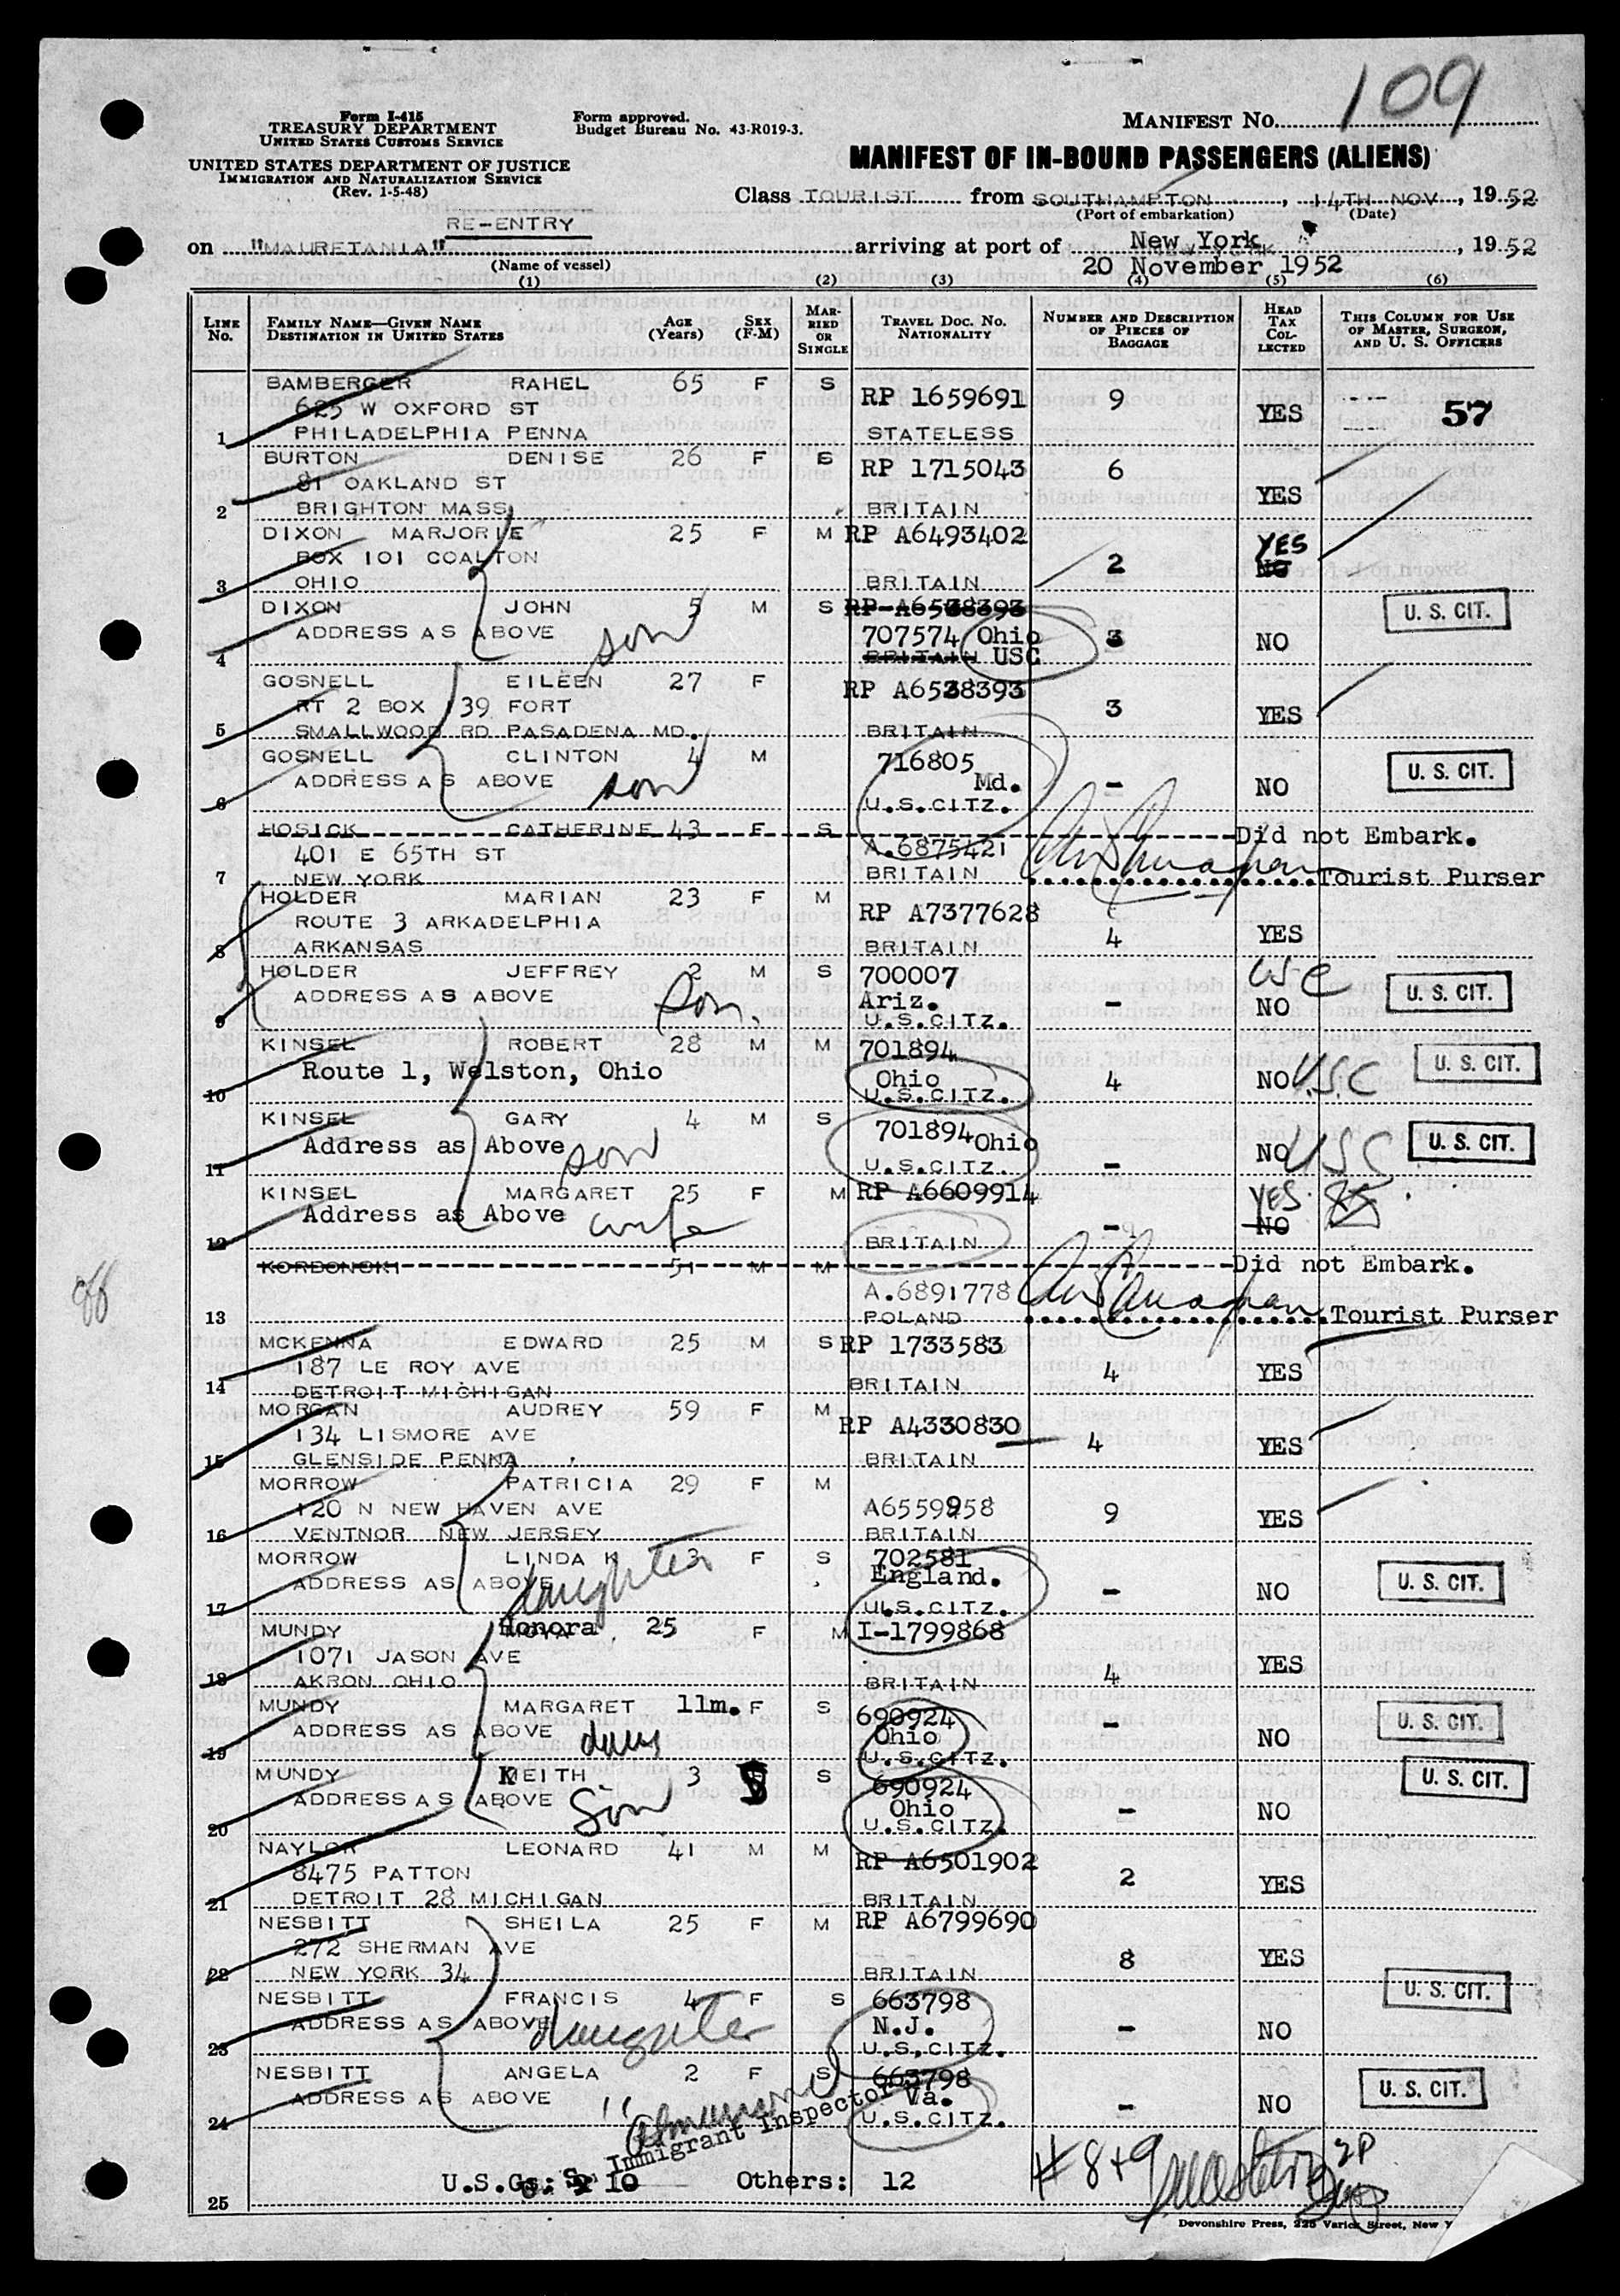 109
Form I-415
TREASURY DEPARTMENT
UNITED STATES CUSTOMS SERVICE
UNITED STATES DEPARTMENT OF JUSTICE
IMMIGRATION AND NATURALIZATION SERVICE
(Rev. 1-5-48)
Form approved.
Budget Bureau No. 43-R019-3.
MANIFEST No.
MANIFEST OF IN-BOUND PASSENGERS (ALIENS)
Class TOURIST from SOUTHAMPTON, 14TH NOV, 1952
(Port of embarkation) (Date)
RE-ENTRY
on "MAURETANIA" arriving at port of New York, 1952
(Name of vessel) 20 November 1952
(1) (2) (3) (4) (5) (6)
LINE No. FAMILY NAME—GIVEN NAME DESTINATION IN UNITED STATES AGE (Years) SEX (F-M) MARRIED OR SINGLE TRAVEL DOC. NO. NATIONALITY NUMBER AND DESCRIPTION OF PIECES OF BAGGAGE HEAD TAX COLLECTED THIS COLUMN FOR USE OF MASTER, SURGEON, AND U. S. OFFICERS
BAMBERGER RAHEL 65 F S RP 1659691 9 YES 57
625 W OXFORD ST
1 PHILADELPHIA PENNA STATELESS
BURTON DENISE 26 F S RP 1715043 6 YES
81 OAKLAND ST
2 BRIGHTON MASS BRITAIN
DIXON MARJORIE 25 F M RP A6493402 YES
BOX 101 COALTON 2 NO
3 OHIO BRITAIN
DIXON JOHN 5 M S RP A6538393 U. S. CIT.
ADDRESS AS ABOVE son 707574 Ohio 3 NO
4 BRITAIN USC
GOSNELL EILEEN 27 F RP A6538393
RT 2 BOX 139 FORT 3 YES
5 SMALLWOOD RD PASADENA MD. BRITAIN
GOSNELL CLINTON 4 M 716805 U. S. CIT.
ADDRESS AS ABOVE son Md. - NO
6 U.S.CITZ.
HOSICK CATHERINE 43 F S Did not Embark.
401 E 65TH ST A.6875421
7 NEW YORK BRITAIN Tourist Purser
HOLDER MARIAN 23 F M RP A7377628
ROUTE 3 ARKADELPHIA 4 YES
8 ARKANSAS BRITAIN
HOLDER JEFFREY 2 M S 700007 USC U. S. CIT.
ADDRESS AS ABOVE Son. Ariz. - NO
9 U.S.CITZ.
KINSEL ROBERT 28 M M 701894 U. S. CIT.
Route 1, Welston, Ohio Ohio 4 NO U.S.C
10 U.S.CITZ.
KINSEL GARY 4 M S 701894 Ohio U. S. CIT.
Address as Above son - NO USC
11 U.S.CITZ.
KINSEL MARGARET 25 F M RP A6609914 YES
Address as Above wife - NO
12 BRITAIN
KORDONSKI 51 M M Did not Embark.
A.6891778
13 POLAND Tourist Purser
MCKENNA EDWARD 25 M S RP 1733583
187 LE ROY AVE 4 YES
14 DETROIT MICHIGAN BRITAIN
MORGAN AUDREY 59 F M RP A4330830
134 LISMORE AVE 4 YES
15 GLENSIDE PENNA BRITAIN
MORROW PATRICIA 29 F M
120 N NEW HAVEN AVE A6559258 9 YES
16 VENTNOR NEW JERSEY BRITAIN
MORROW LINDA K 3 F S 702581 U. S. CIT.
ADDRESS AS ABOVE daughter England. - NO
17 U.S.CITZ.
MUNDY Honora 25 F M I-1799868
1071 JASON AVE 4 YES
18 AKRON OHIO BRITAIN
MUNDY MARGARET 11m. F S 690924 U. S. CIT.
ADDRESS AS ABOVE daug Ohio - NO
19 U.S.CITZ.
MUNDY KEITH 3 S 690924 U. S. CIT.
ADDRESS AS ABOVE Son Ohio - NO
20 U.S.CITZ.
NAYLOR LEONARD 41 M M RP A6501902
8475 PATTON 2 YES
21 DETROIT 28 MICHIGAN BRITAIN
NESBITT SHEILA 25 F M RP A6799690
272 SHERMAN AVE 8 YES
22 NEW YORK 34 BRITAIN
NESBITT FRANCIS 4 F S 663798 U. S. CIT.
ADDRESS AS ABOVE daughter N.J. - NO
23 U.S.CITZ.
NESBITT ANGELA 2 F S 663798 U. S. CIT.
ADDRESS AS ABOVE " Va. - NO
24 U.S.CITZ.
Immigrant Inspector
# 8+9
25 U.S.Cs: 10 Others: 12
Devonshire Press, 225 Varick Street, New Y